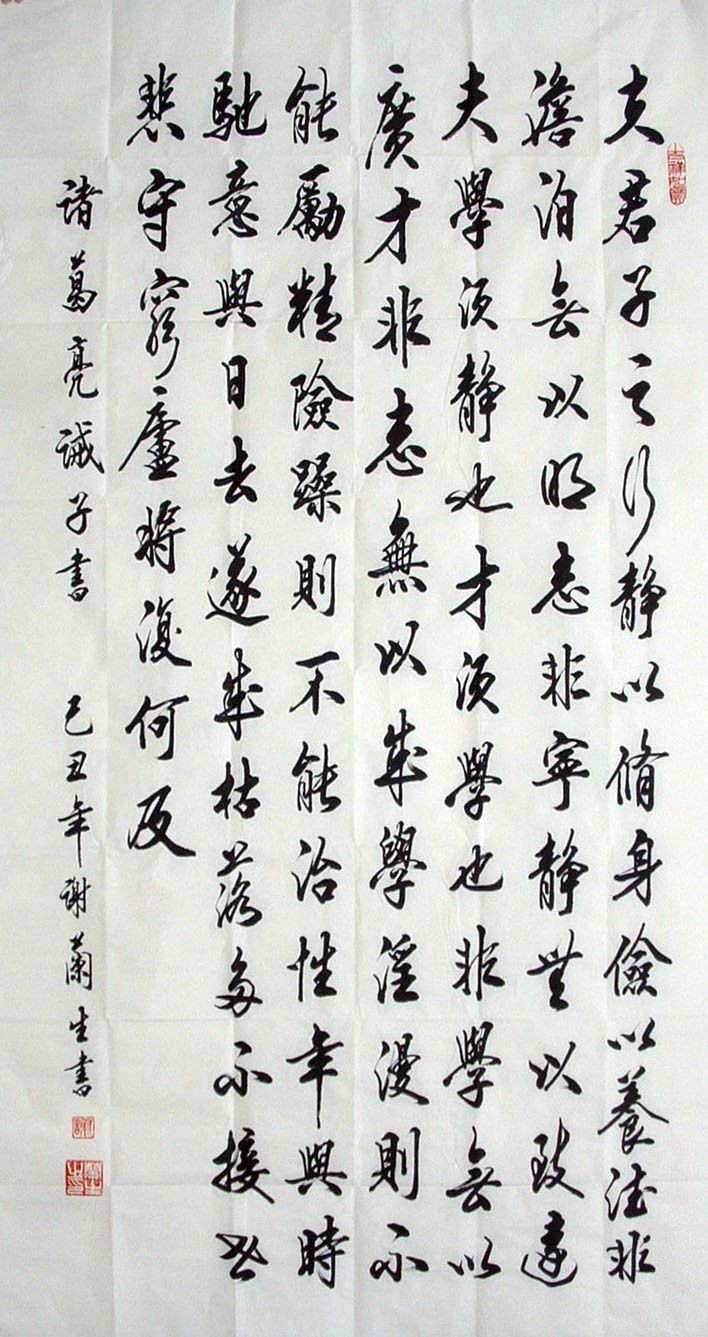 夫君子之行静以脩身儉以養德非
澹泊無以明志非寧静無以致遠
夫學須静也才須學也非學無以
廣才非志無以成學淫漫則不
能勵精險躁則不能治性年與時
馳意與日去遂成枯落多不接世
悲守窮廬將復何及
諸葛亮誡子書 己丑年謝蘭生書
吉祥如意